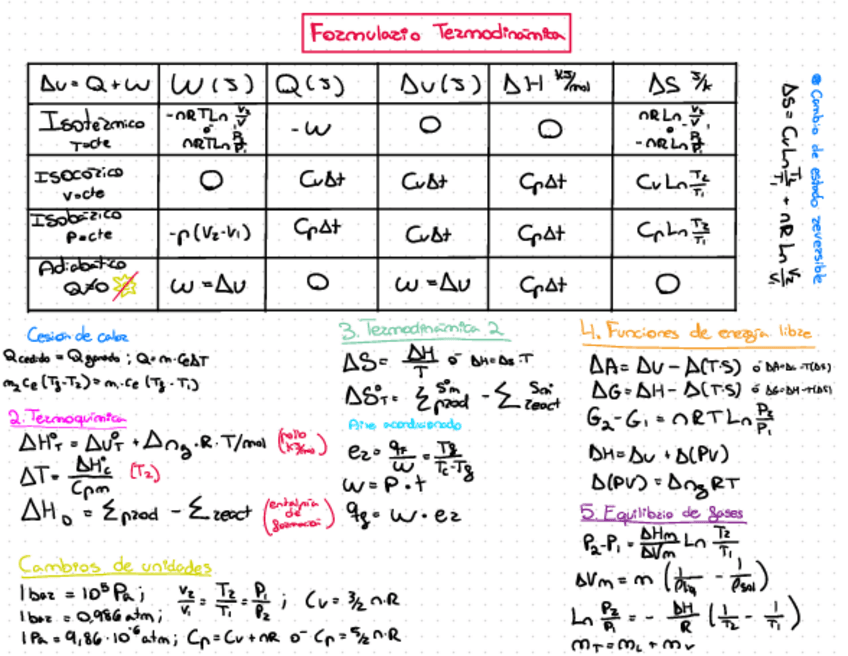 Formulario Termodinámica
ΔU = Q + W W (J) Q (J) ΔU (J) ΔH KJ/mol ΔS J/K
Isotérmico T=cte -nRTLn V₂/V₁ o nRTLn P₂/P₁ -W O O nRLn V₂/V₁ o -nRLn P₂/P₁
Isocórico V=cte O CvΔt CvΔt CpΔt CvLn T₂/T₁
Isobárico P=cte -p(V₂-V₁) CpΔt CvΔt CpΔt CpLn T₂/T₁
Adiabático Q=0 W = ΔU O W = ΔU CpΔt O
Cambio de estado reversible
ΔS = CvLn T₂/T₁ + nRLn V₂/V₁
Cesión de calor
Qcedido = Qganado ; Q = m·CeΔT
m₂Ce(Tf-T₂) = m₁Ce(Tf-T₁)
2. Termoquímica
ΔH°T = ΔU°T + Δng·R·T/mol
ΔT = ΔH°c/Cpm (T₂)
ΔH₀ = Σprod - Σreact (entalpía de formación)
Cambios de unidades
1 bar = 10⁵ Pa ; V₂/V₁ = T₂/T₁ = P₁/P₂ ; Cv = 3/2 n·R
1 bar = 0,986 atm ;
1 Pa = 9,86·10⁻⁶ atm ; Cp = Cv + nR o Cp = 5/2 n·R
3. Termodinámica 2
ΔS = ΔH/T o ΔH = ΔS·T
ΔS°T = Σprod - Σreact
Aire acondicionado
er = qf/W = Tf/Tc-Tf
W = P·t
qf = W·er
4. Funciones de energía libre
ΔA = ΔU - Δ(T·S) o ΔA=ΔU-T(ΔS)
ΔG = ΔH - Δ(T·S) o ΔG=ΔH-T(ΔS)
G₂-G₁ = nRTLn P₂/P₁
ΔH = ΔU + Δ(PV)
Δ(PV) = ΔngRT
5. Equilibrio de gases
P₂-P₁ = ΔHm/ΔVm Ln T₂/T₁
ΔVm = m (1/ρliq - 1/ρsol)
Ln P₂/P₁ = - ΔH/R (1/T₂ - 1/T₁)
mT = mL + mV